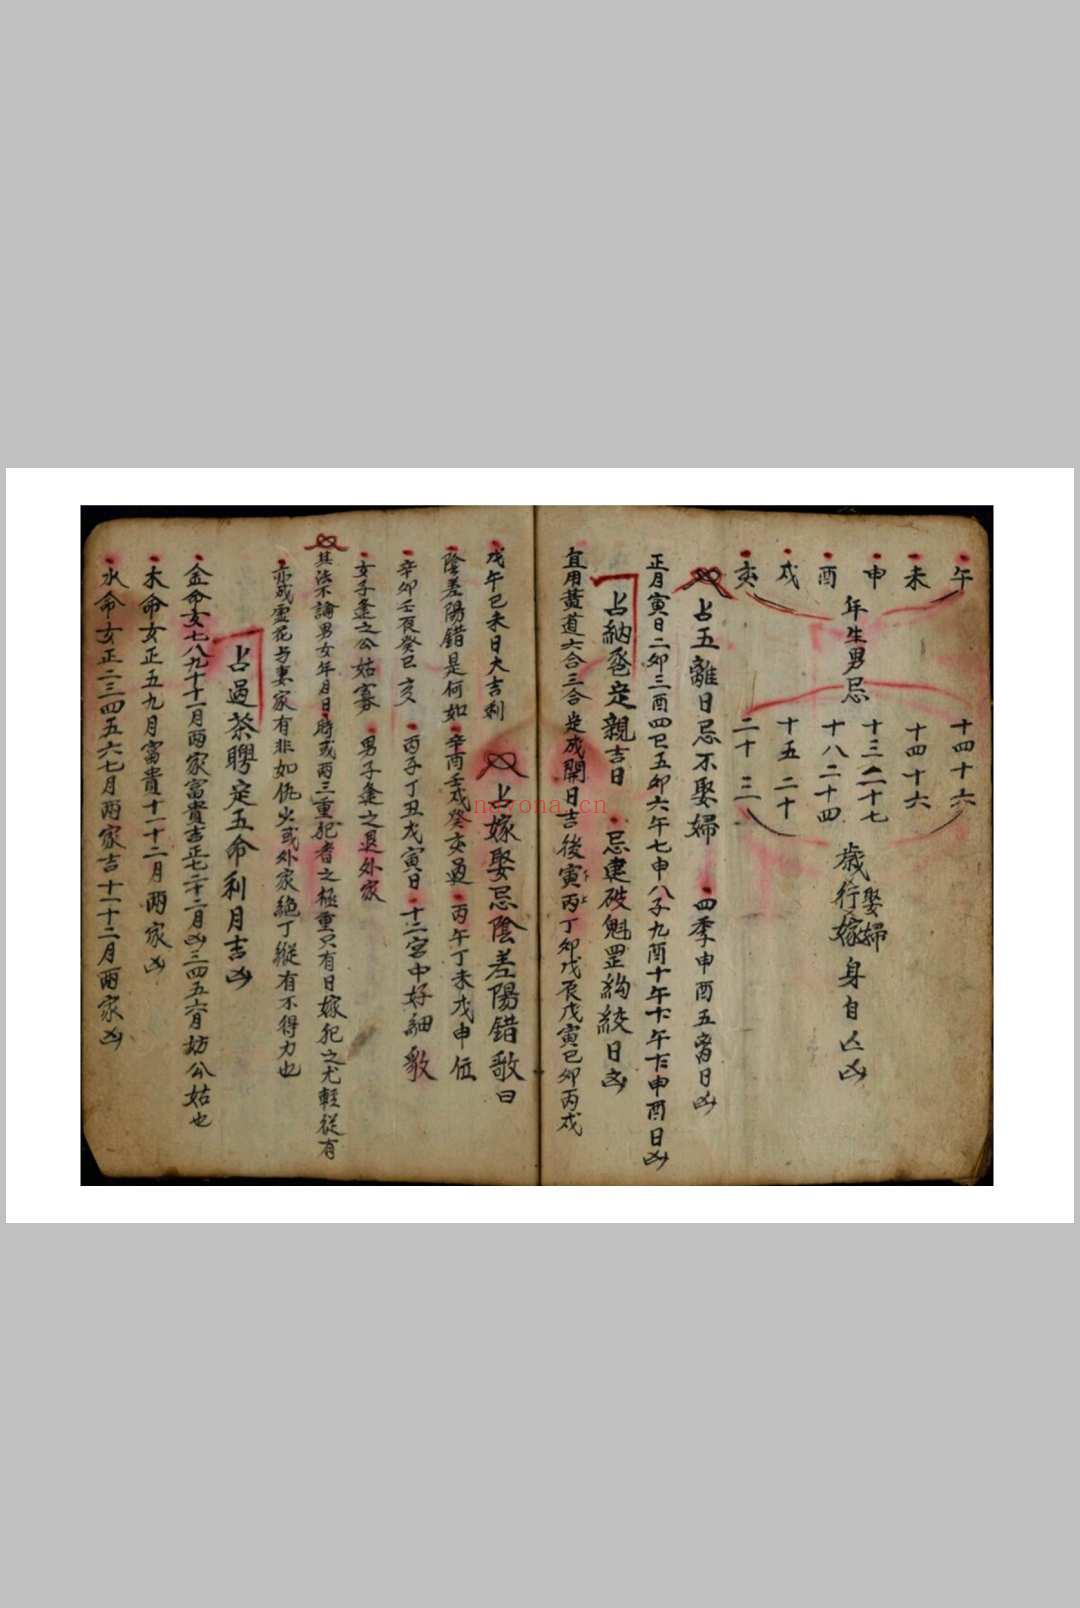 午 未 申 酉 戍 亥
年生男忌
十四十六
十四十六
十三二十七
十八二十四
十五二十
二十三
歲行 娶婦 嫁 身自亡凶
占五離日忌不娶婦 四季申酉五离日凶
正月寅日二卯三酉四巳五卯六午七申八子九酉十午十一午十二申酉日凶
占納 定親吉日 忌建破魁罡絞日凶
宜用黃道六合三合定成開日吉後寅丙丁卯戊辰戊寅己卯丙戍
戊午己未日大吉利
占嫁娶忌陰差陽錯歌曰
陰差陽錯是何如 辛酉壬戍癸亥過 丙午丁未戊申位
辛卯壬辰癸巳交 丙子丁丑戊寅日 十二宮中好細歌
女子逢之公姑寡 男子逢之退外家
其法不論男女年月日時或兩三重犯者之極重只有日嫁犯之尤輕從有
亦成虛花与妻家有非如仇火或外家絕丁縱有不得力也
占過茶聘定五命利月吉凶
金命女七八九十十一月兩家富貴吉正七二十二月凶三四五六月妨公姑也
木命女正五九月富貴十一十二月兩家凶
水命女正二三四五六七月兩家吉十一十二月兩家凶
nayona.cn